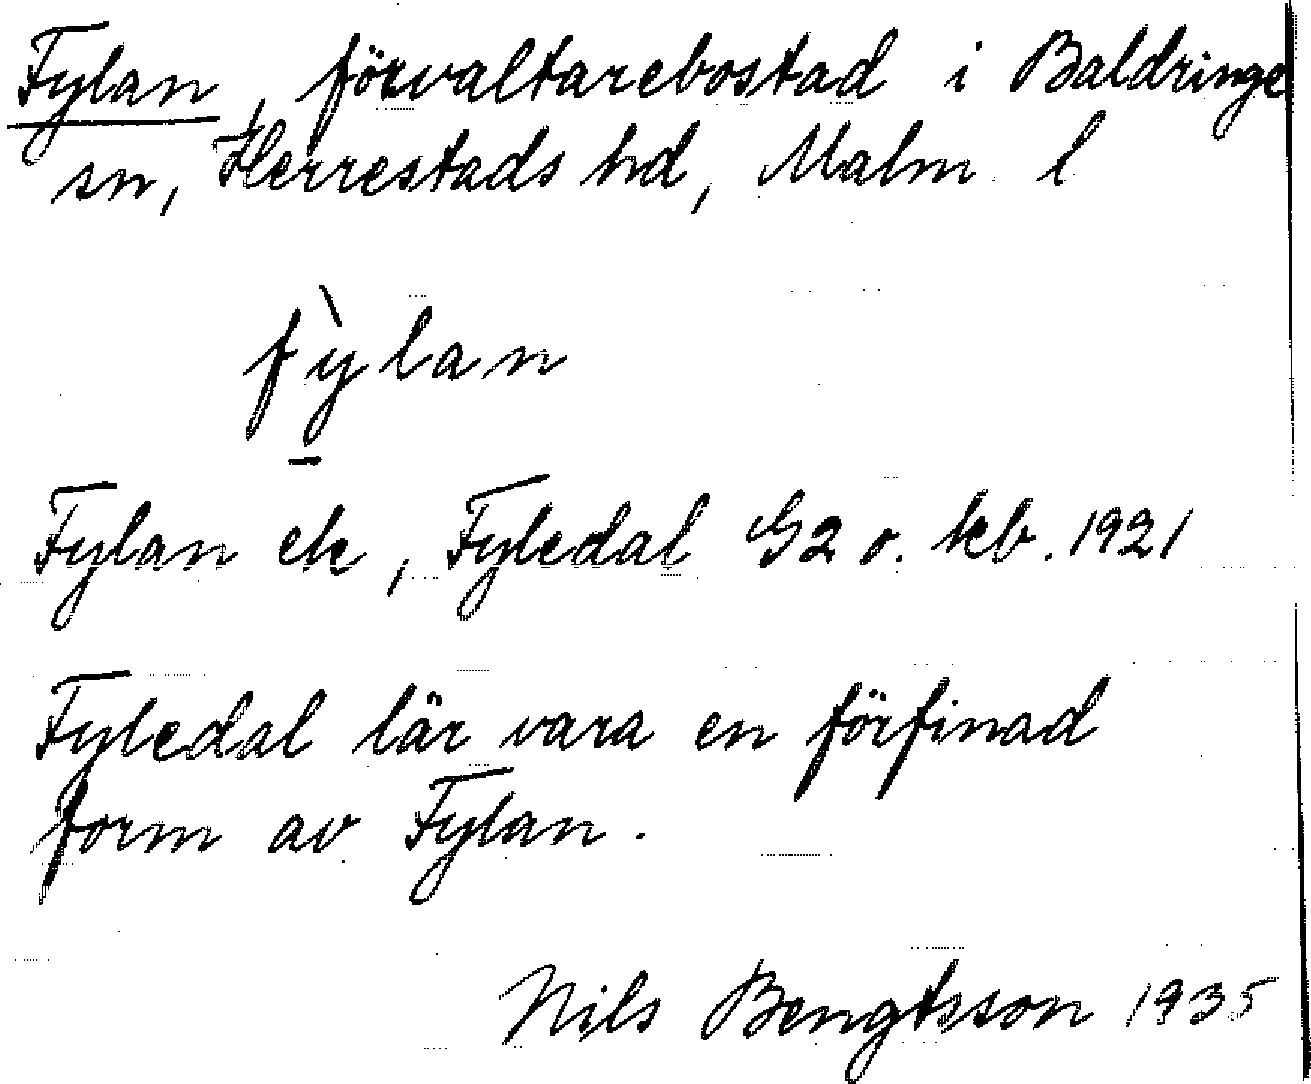 Fylan, förvaltarebostad i Baldringe
sn, Herrestads hd, Malm l
fỳlan
Fylan ek, Fyledal G2 o. kb. 1921
Fyledal lär vara en förfinad
form av Fylan.
Nils Bengtsson 1935